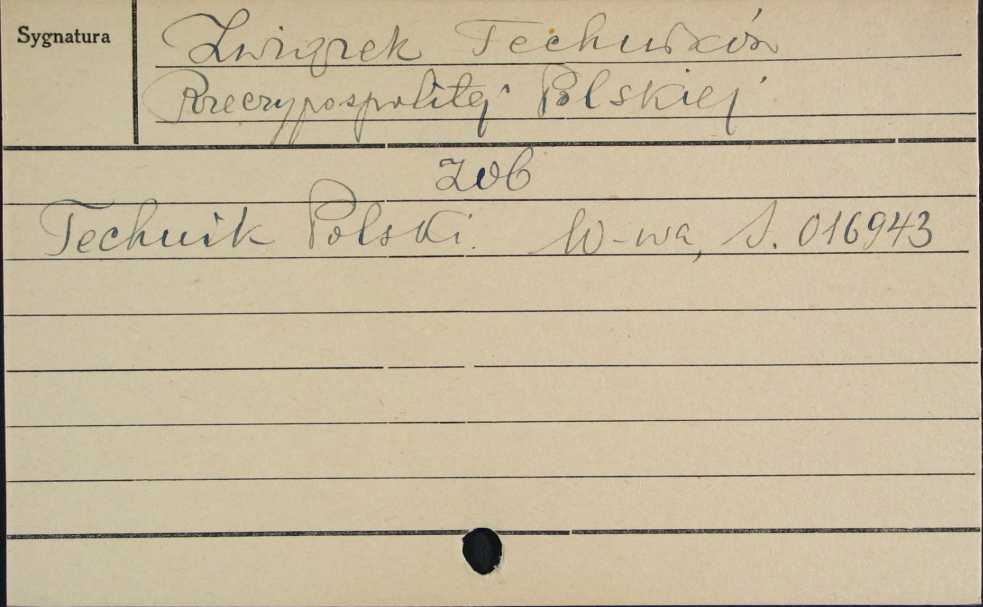 Sygnatura
Związek Techników
Rzeczypospolitej Polskiej
zob
Technik Polski. W-wa, S. 016943